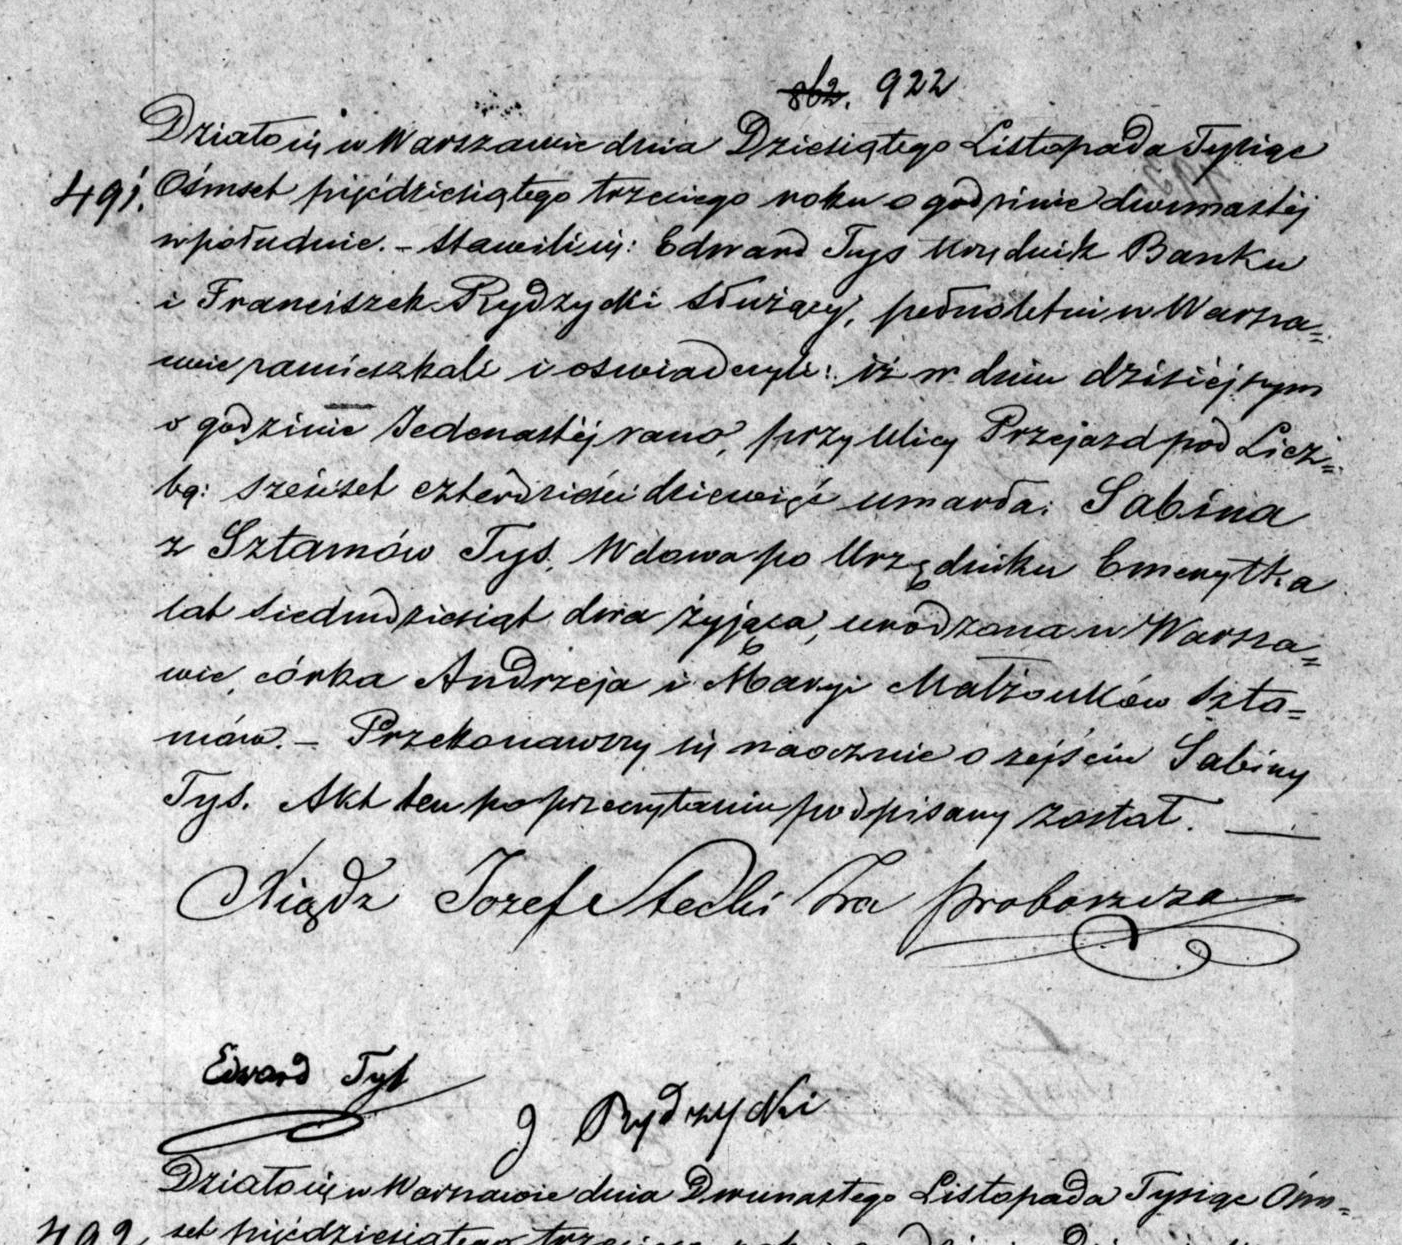 862. 922
Działo się w Warszawie dnia Dziesiątego Listopada Tysiąc
491. Ośmset pięćdziesiątego trzeciego roku o godzinie dwunastéj
w południe. – Stawili się: Edward Tys Urzędnik Banku
i Franciszek Rydzycki Służący, pełnoletni w Warsza=
wie zamieszkali i oświadczyli: iż w dniu dzisiejszym
o godzinie Jedenastéj rano, przy Ulicy Przejazd pod Licz=
bą: sześćset czterdzieści dziewięć umarła: Sabina
z Sztamów Tys, Wdowa po Urzędniku Emerytka
lat siedmdziesiąt dwa żyjąca, urodzona w Warsza=
wie, córka Andrzeja i Maryi Małżonków Szta=
mów. – Przekonawszy się naocznie o zejściu Sabiny
Tys. Akt ten po przeczytaniu podpisany został. —
Xiądz Jozef Stecki Za Proboszcza
Edward Tys
Rydzycki
Działo się w Warszawie dnia Dwunastego Listopada Tysiąc Ośm=
492. set pięćdziesiątego